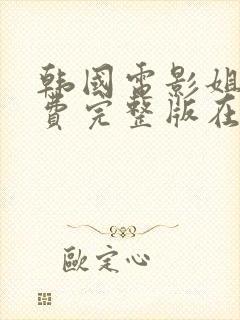 韩国电影姐
费完整版在
欧定心